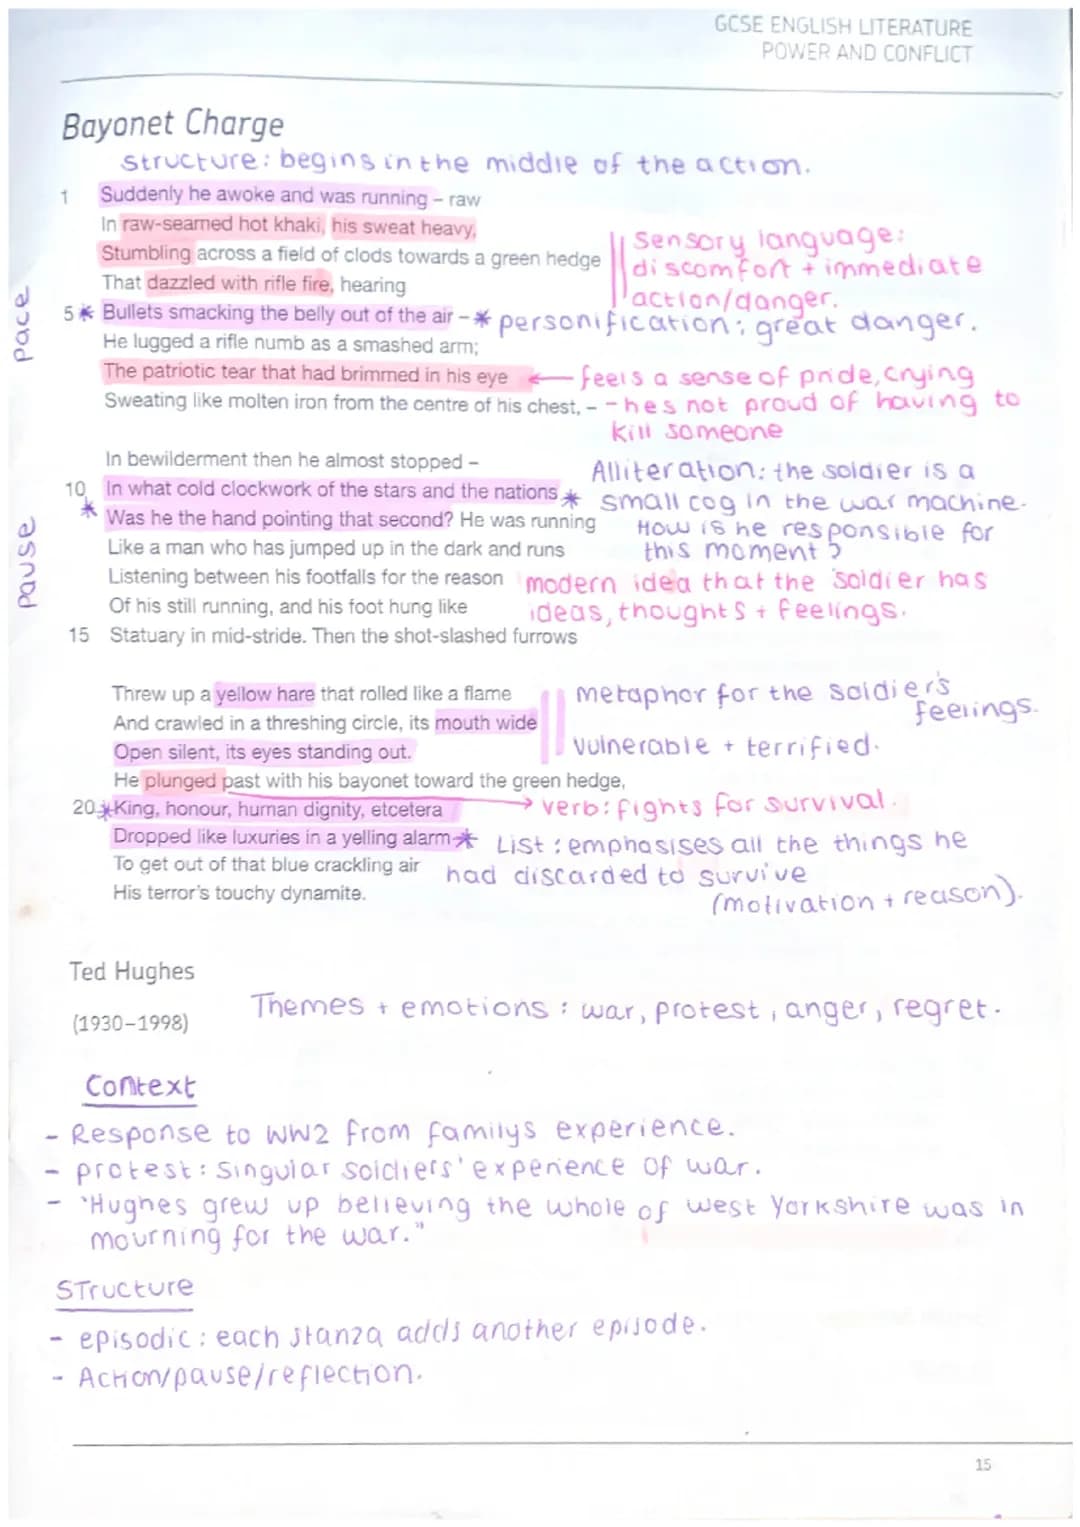 GCSE ENGLISH LITERATURE
POWER AND CONFLICT
Bayonet Charge
Structure: begins in the middle of the action.
1 Suddenly he awoke and was running – raw
In raw-seamed hot khaki, his sweat heavy,
Stumbling across a field of clods towards a green hedge
That dazzled with rifle fire, hearing
Sensory language:
discomfort + immediate
action/danger.
Pace
5 * Bullets smacking the belly out of the air – * personification: great danger.
He lugged a rifle numb as a smashed arm;
The patriotic tear that had brimmed in his eye ← feels a sense of pride, crying
Sweating like molten iron from the centre of his chest, – - hes not proud of having to
kill someone
In bewilderment then he almost stopped –
Alliteration: the soldier is a
10 In what cold clockwork of the stars and the nations * small cog in the war machine.
* Was he the hand pointing that second? He was running
How is he responsible for
this moment?
Pause
Like a man who has jumped up in the dark and runs
Listening between his footfalls for the reason
modern idea that the soldier has
Of his still running, and his foot hung like
ideas, thoughts + feelings.
15 Statuary in mid-stride. Then the shot-slashed furrows
Threw up a yellow hare that rolled like a flame
metaphor for the soldier's
feelings.
And crawled in a threshing circle, its mouth wide
Open silent, its eyes standing out.
vulnerable + terrified.
He plunged past with his bayonet toward the green hedge,
20 * King, honour, human dignity, etcetera → verb: fights for survival.
Dropped like luxuries in a yelling alarm * List: emphasises all the things he
To get out of that blue crackling air had discarded to survive
His terror's touchy dynamite. (motivation + reason).
Ted Hughes
(1930–1998)
Themes + emotions: war, protest, anger, regret.
Context
- Response to WW2 from familys experience.
- protest: Singular soldiers' experience of war.
- 'Hughes grew up believing the whole of west Yorkshire was in
mourning for the war."
Structure
- episodic: each stanza adds another episode.
- Action/pause/reflection.
15